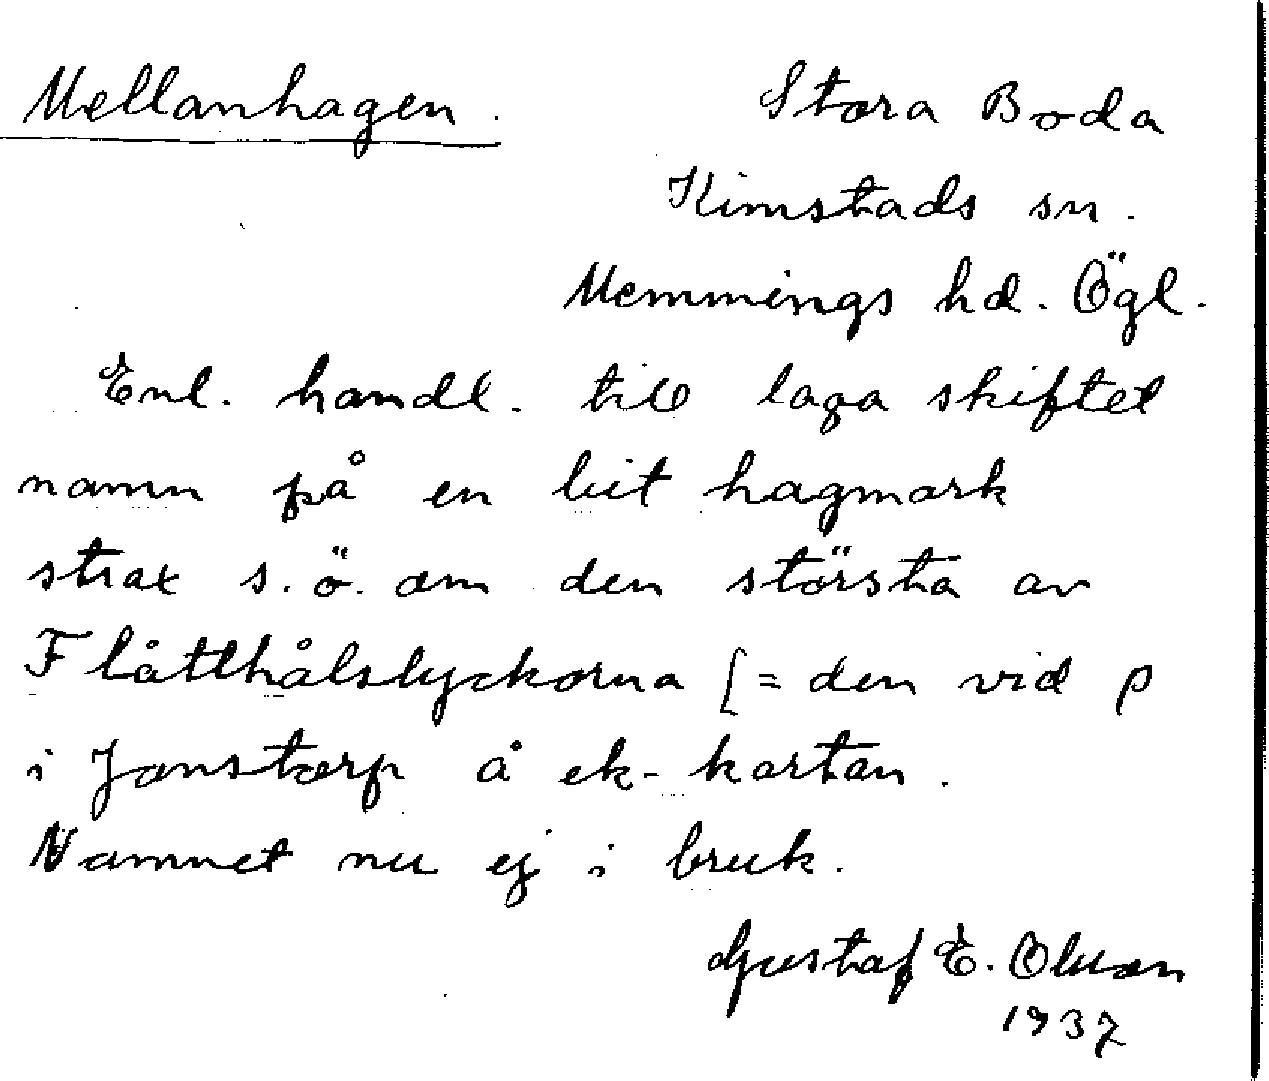 Mellanhagen. Stora Boda
Kimstads sn.
Memmings hd. Ögl.
Enl. handl. till laga skiftet
namn på en bit hagmark
strax s.ö. om den största av
Flåtthålslyckorna [= den vid p
i Jonstorp å ek-kartan.
Namnet nu ej i bruk.
Gustaf E. Olsson
1937